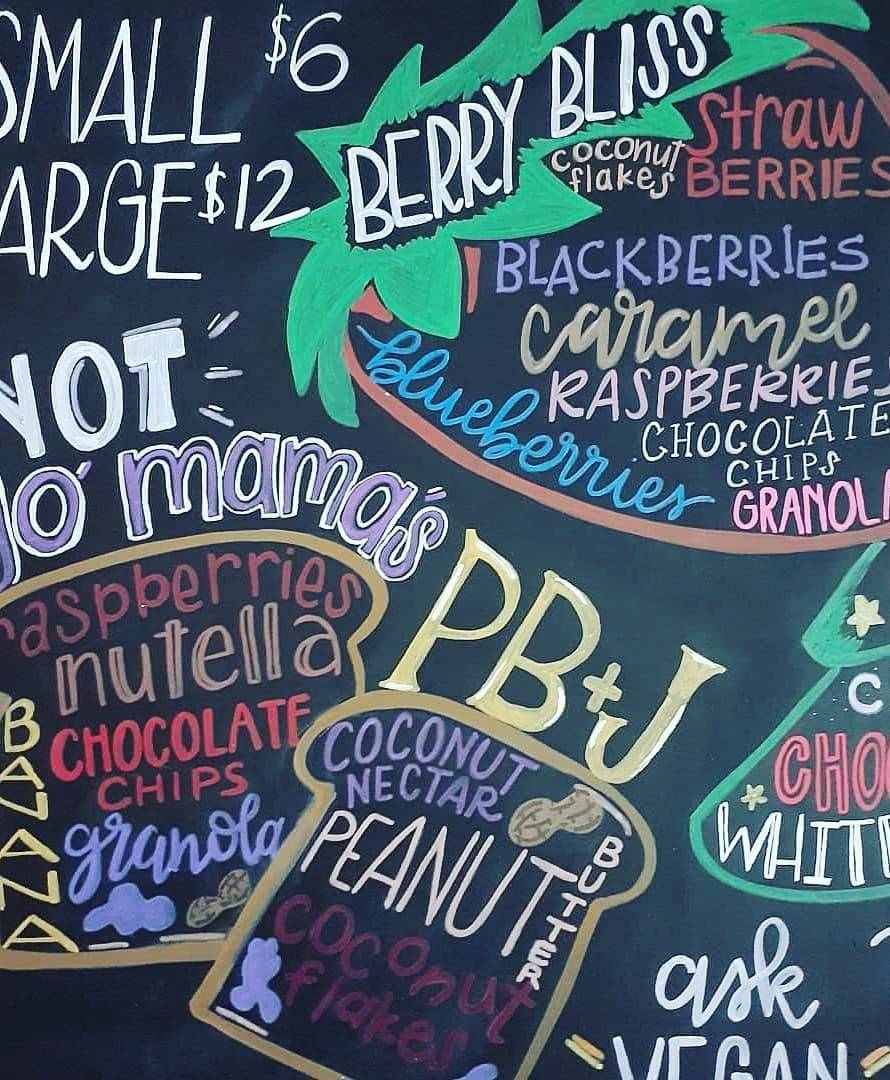 SMALL $6
LARGE $12
BERRY BLISS
coconut
flakes
Straw
BERRIES
BLACKBERRIES
caramel
blueberries
RASPBERRIES
CHOCOLATE
CHIPS
GRANOLA
NOT
Yo' mama's
PB+J
raspberries
nutella
CHOCOLATE
CHIPS
BANANA
granola
COCONUT
NECTAR
PEANUT
BUTTER
coconut
flakes
C
CHO
WHITE
ask
VEGAN